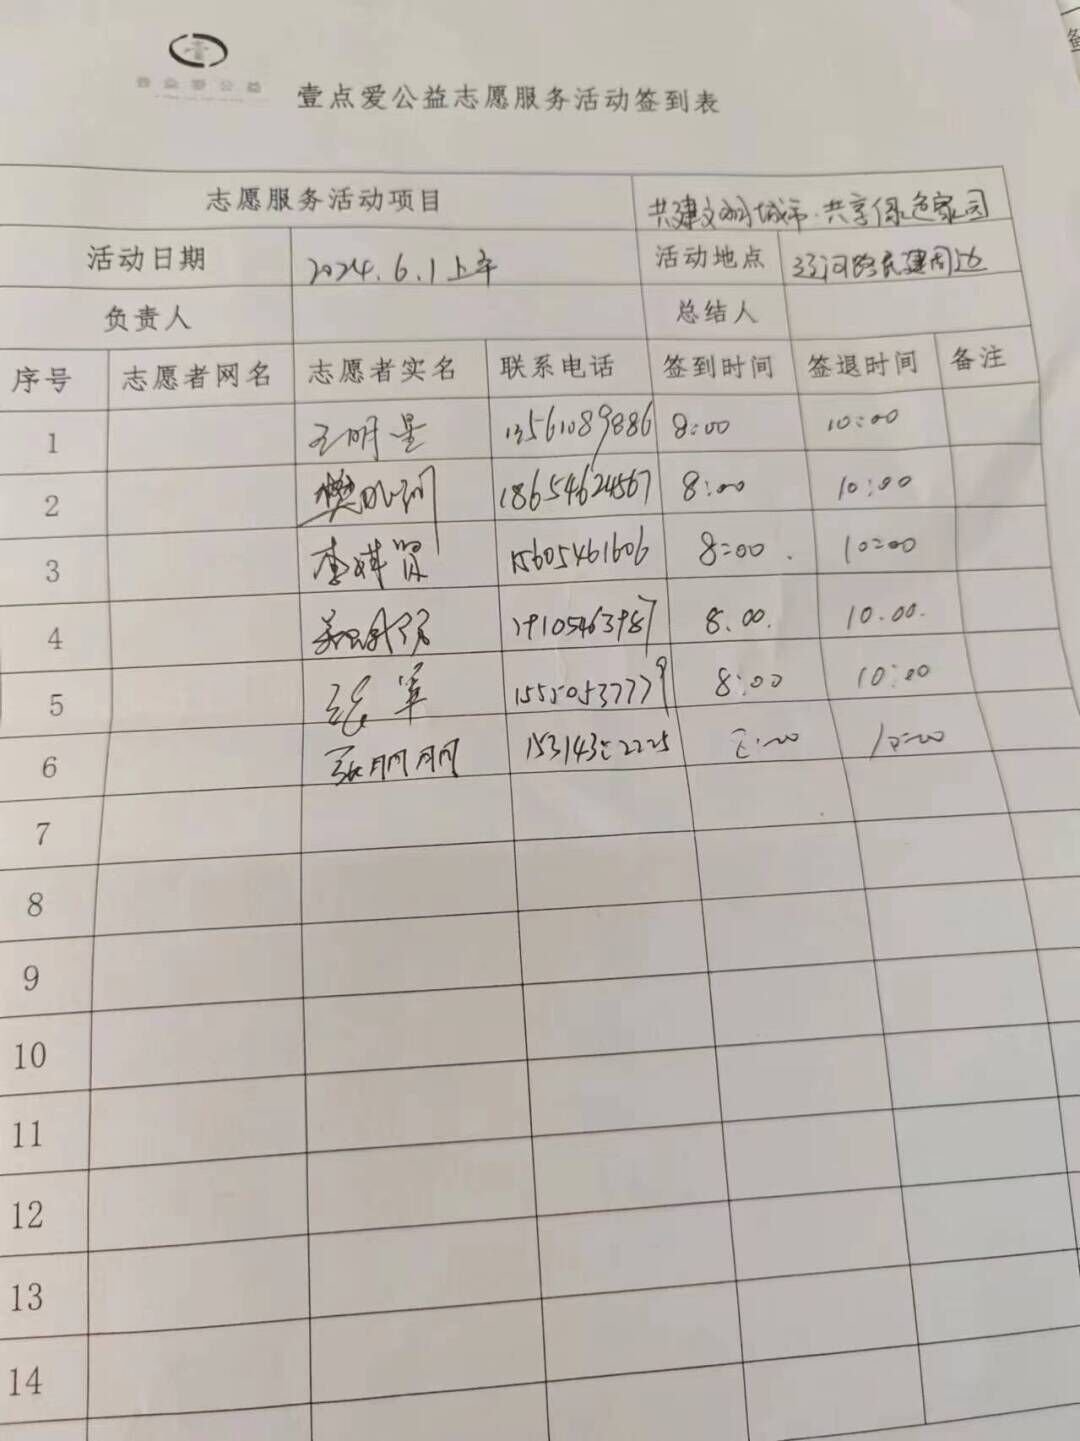 壹点爱公益志愿服务活动签到表
志愿服务活动项目 共建文明城市·共享绿色家园
活动日期 2024.6.1上午 活动地点 辽河路民建周边
负责人 总结人
序号 志愿者网名 志愿者实名 联系电话 签到时间 签退时间 备注
1 王明星 13561089886 8:00 10:00
2 樊 18654624567 8:00 10:00
3 李祥贤 15605461606 8:00 10:00
4 8:00 10:00
5 张军 8:00 10:00
6 张朋朋 8:00 10:00
7
8
9
10
11
12
13
14